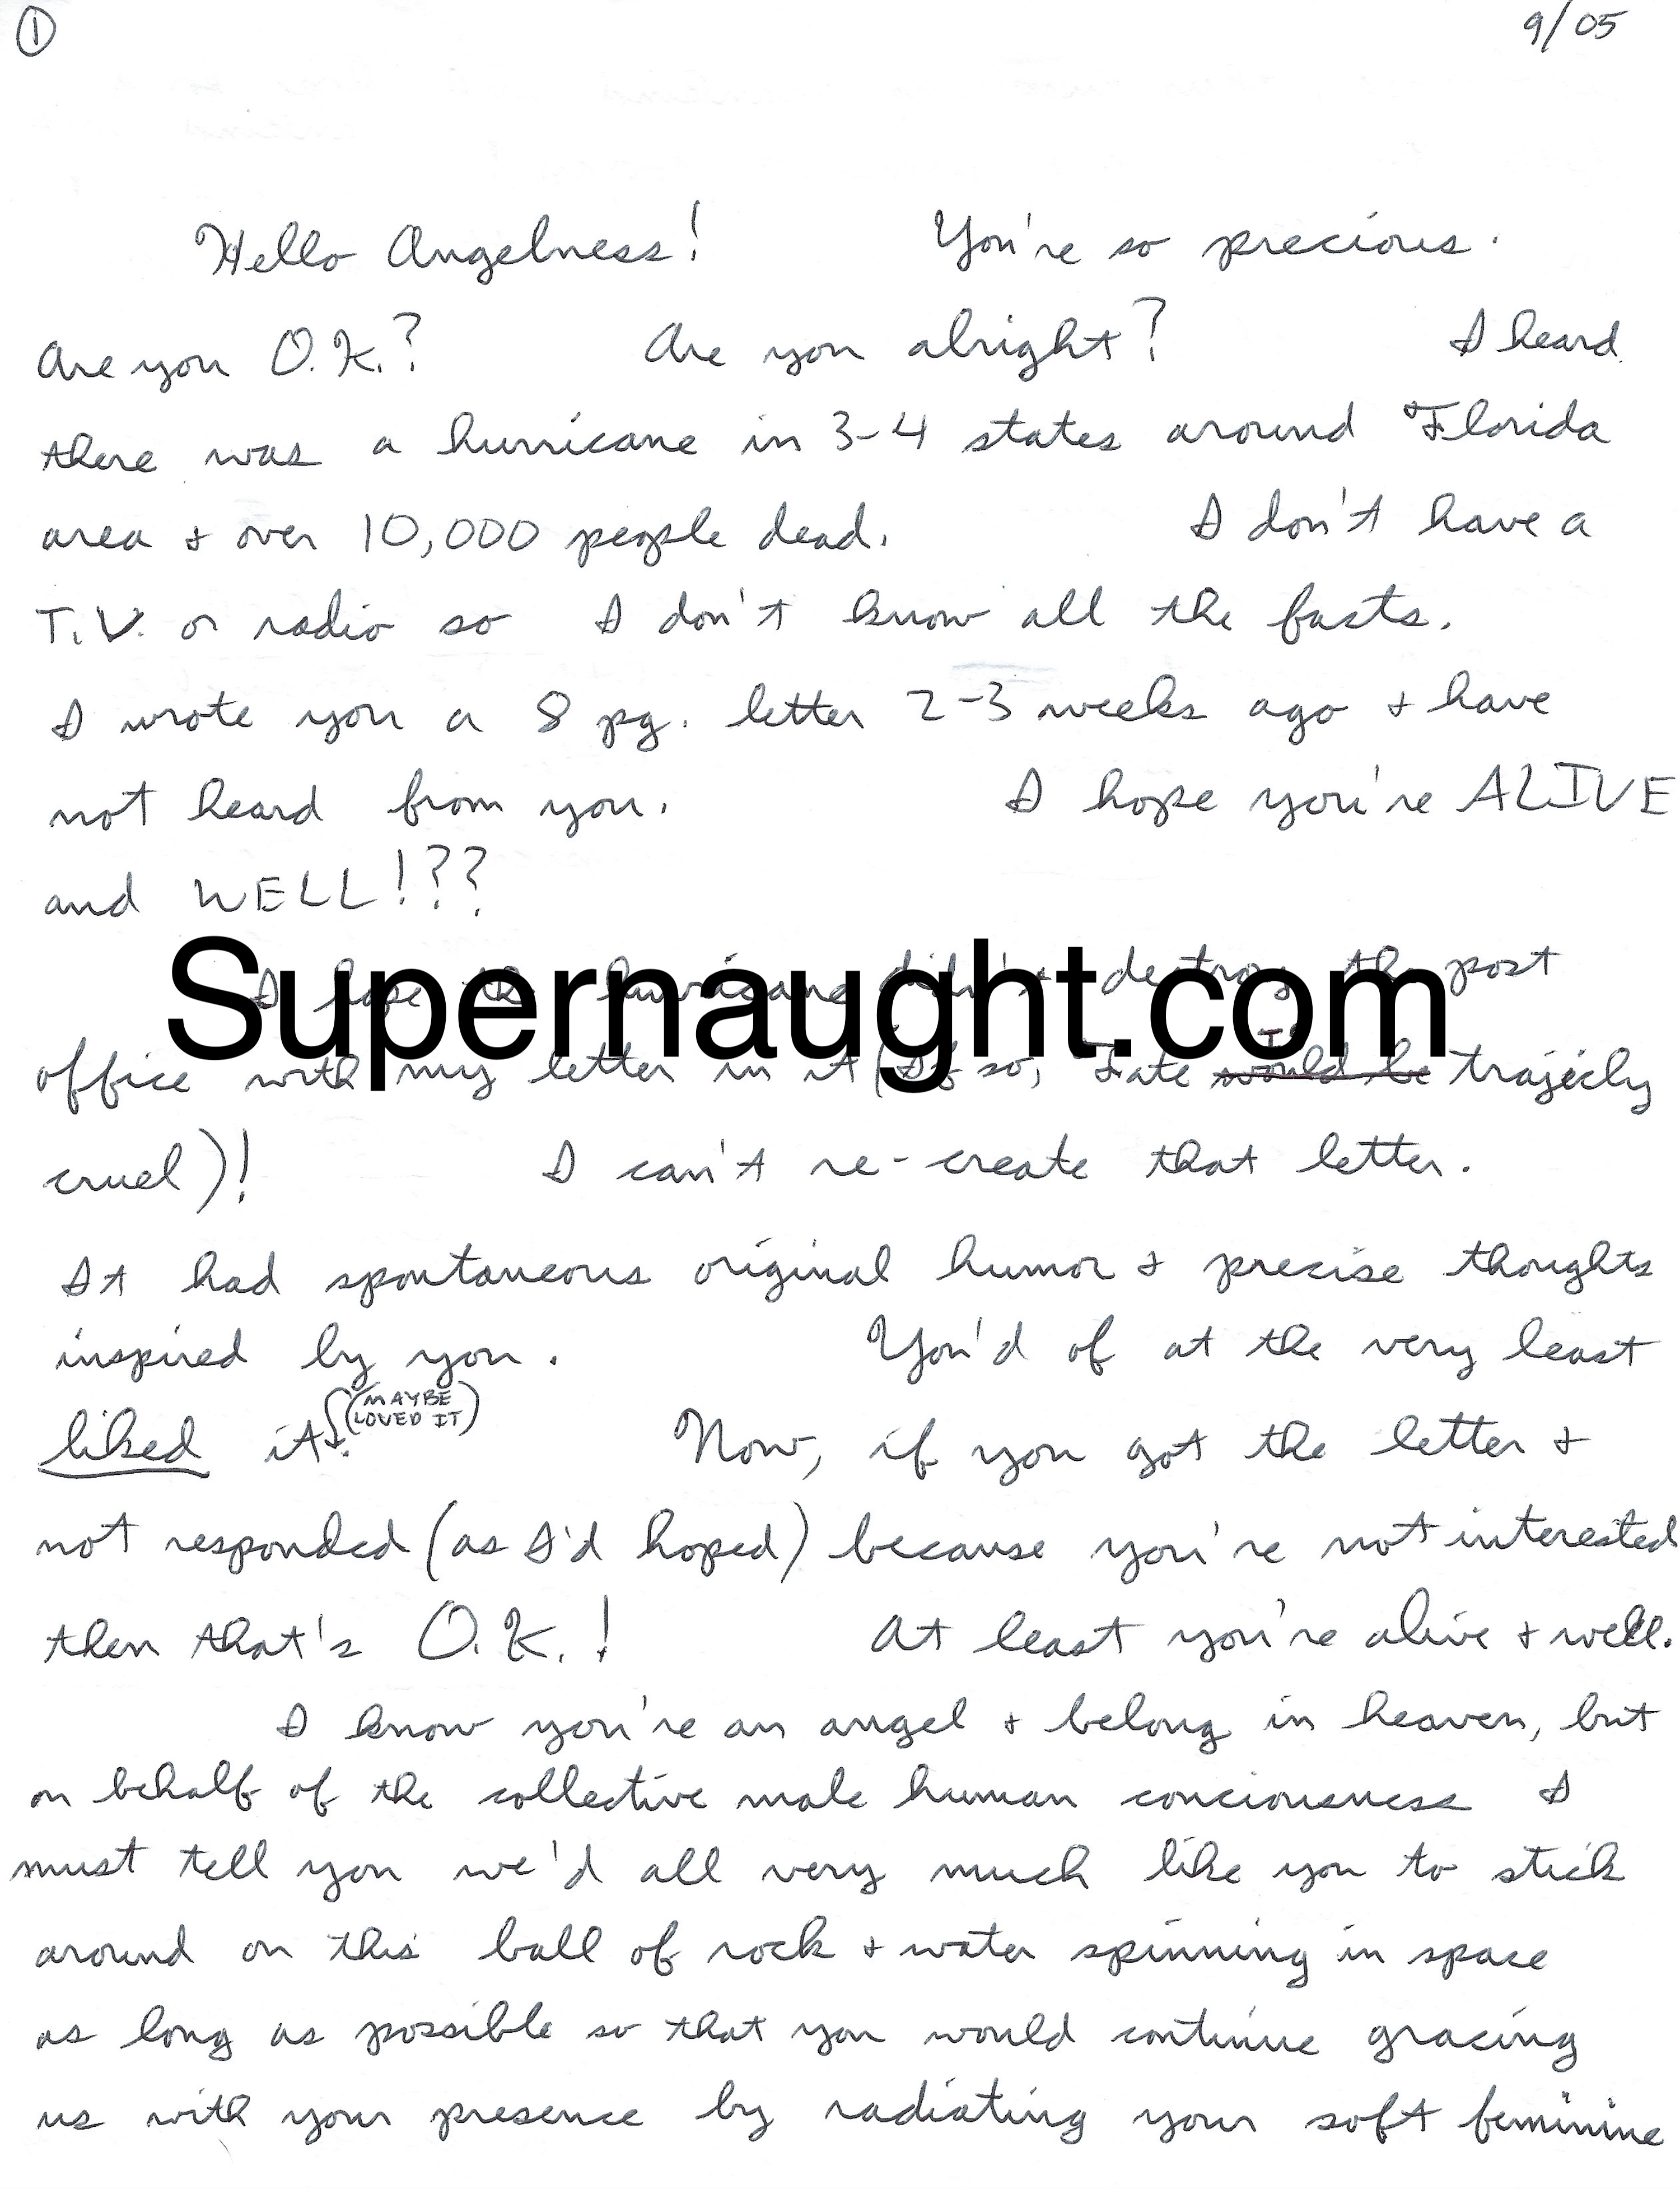 ① 9/05
Hello Angelness! You're so precious.
Are you O.K.? Are you alright? I heard
there was a hurricane in 3-4 states around Florida
area + over 10,000 people dead. I don't have a
T.V. or radio so I don't know all the facts.
I wrote you a 8 pg. letter 2-3 weeks ago + have
not heard from you. I hope you're ALIVE
and WELL!??
I hope the hurricane didn't destroy the post
Supernaught.com
office with my letter in it (If so, Fate would be trajicly
cruel)! I can't re-create that letter.
It had spontaneous original humor + precise thoughts
inspired by you. You'd of at the very least
liked it (MAYBE LOVED IT). Now, if you got the letter +
not responded (as I'd hoped) because you're not interested
then that's O.K.! At least you're alive + well.
I know you're an angel + belong in heaven, but
on behalf of the collective male human conciousness I
must tell you we'd all very much like you to stick
around on this ball of rock + water spinning in space
as long as possible so that you would continue gracing
us with your presence by radiating your soft feminine